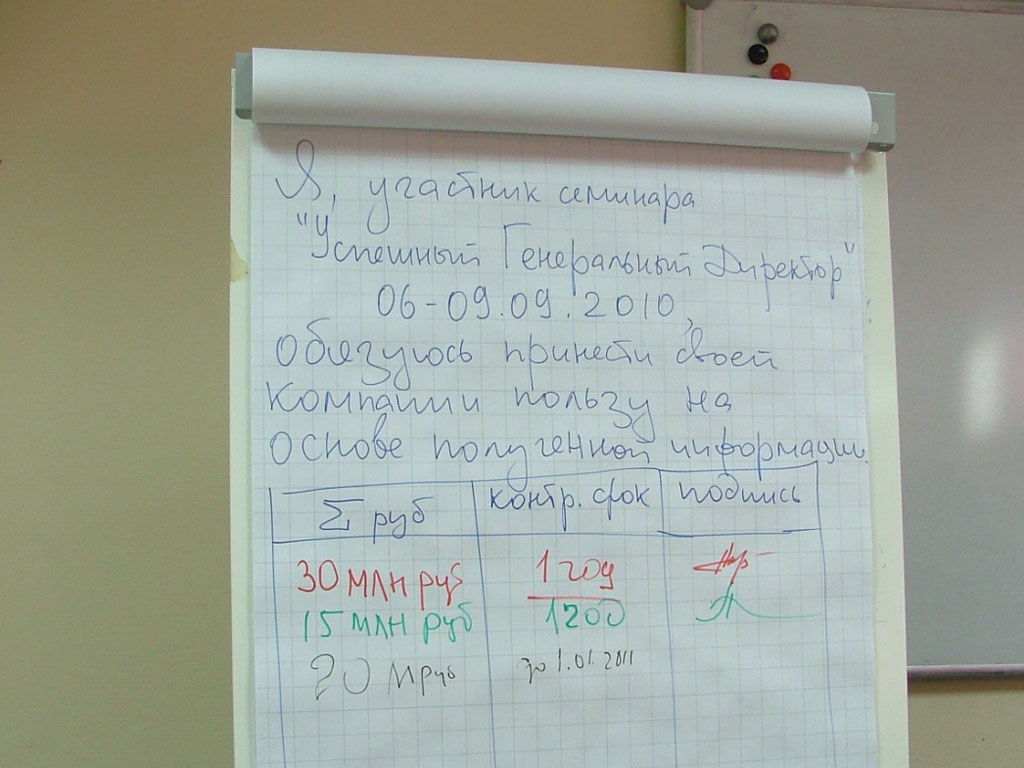 Я, участник семинара
"Успешный Генеральный Директор"
06-09.09.2010,
обязуюсь принести своей
компании пользу на
основе полученной информации.
Σ руб контр. срок подпись
30 млн руб 1 год
15 млн руб 1 год
20 Мруб до 1.01.2011